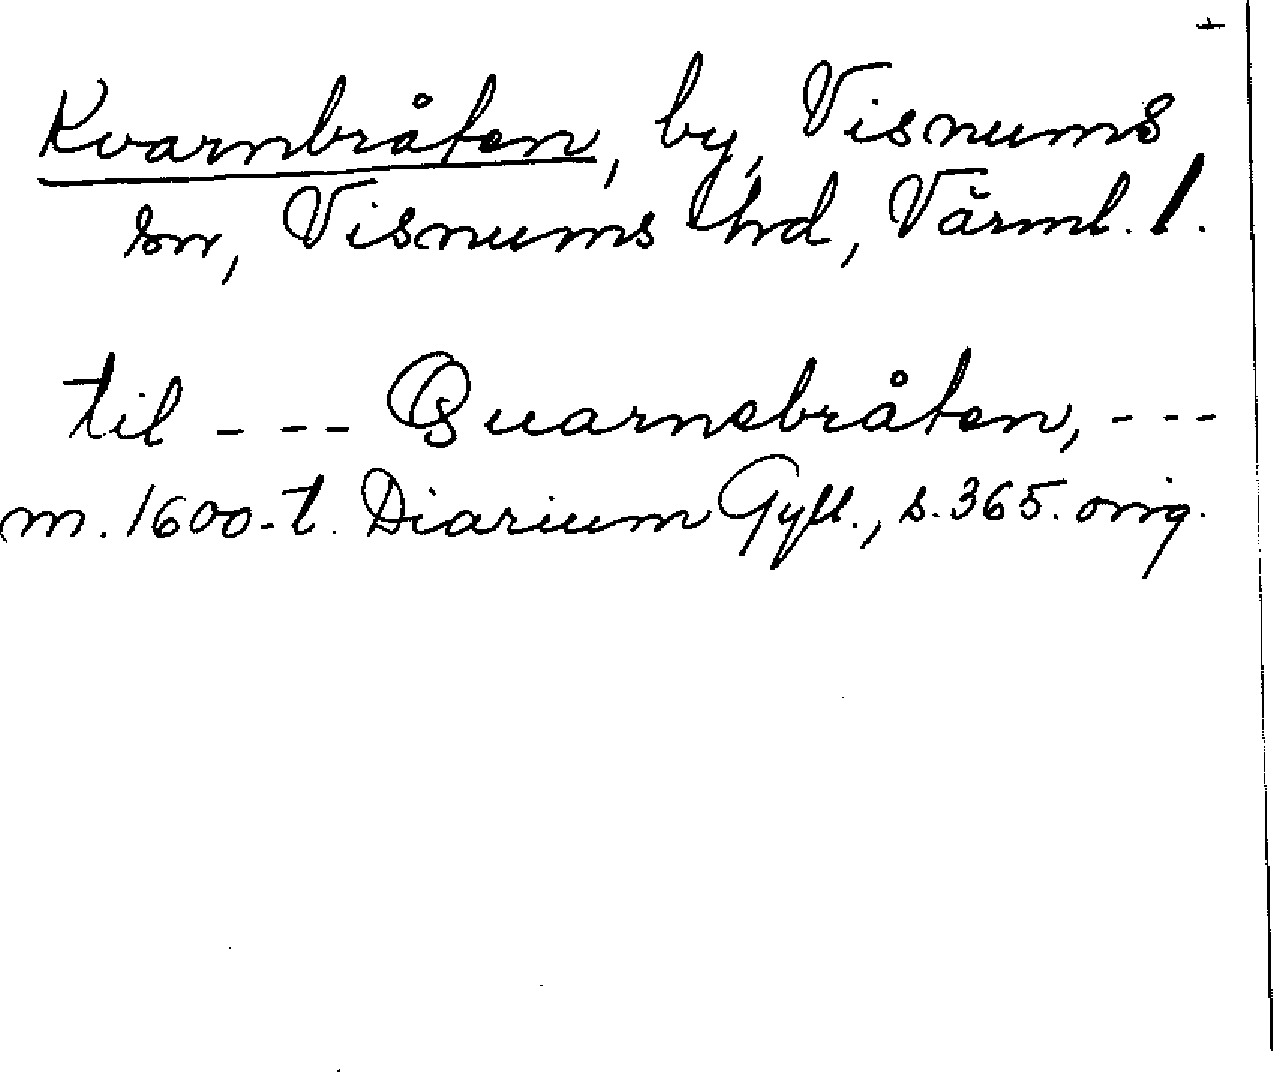 Kvarnbråten, by, Visnums
sn, Visnums hd, Värml. l.
til --- Quarnebråten, ---
m. 1600-t. Diarium Gyll., s. 365. orig.